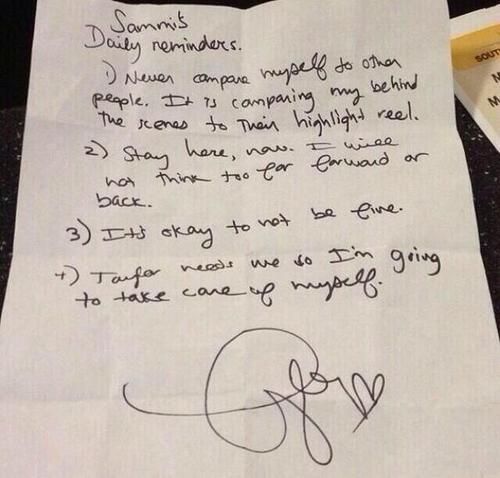 Sammi's
Daily reminders.
1) Never compare myself to other
people. It is comparing my behind
the scenes to their highlight reel.
2) Stay here, now. I will
not think too far forward or
back.
3) It's okay to not be fine.
4) Taylor needs me so I'm going
to take care of myself.
SOUT